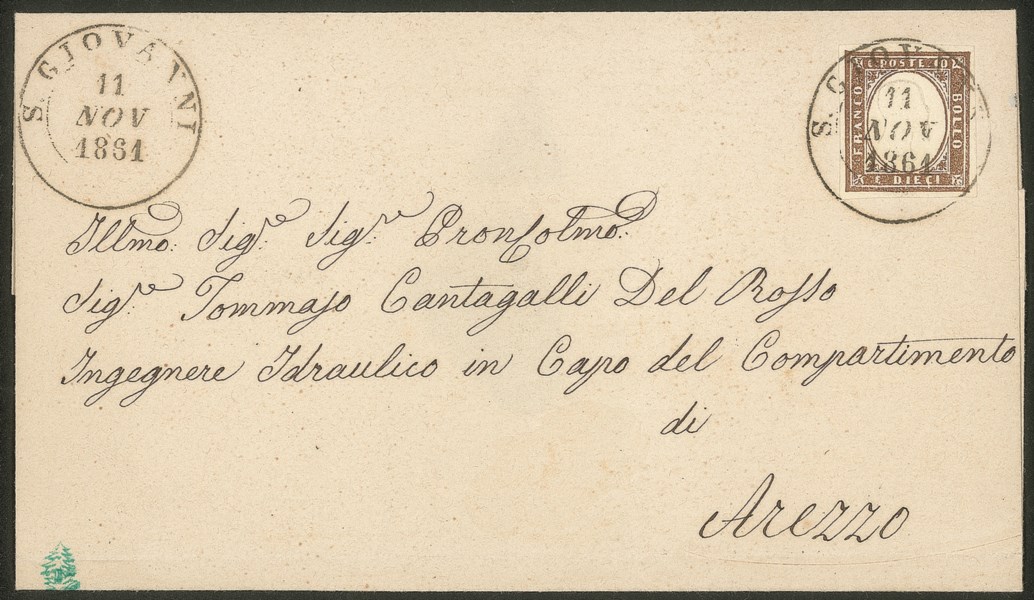 S. GIOVANNI
11
NOV
1861
S. GIOV
11
NOV
1861
C. POSTE 10
FRANCO
BOLLO
C. DIECI
Illmo: Sigre Sigre PronColmo:
Sigre Tommaso Cantagalli Del Rosso
Ingegnere Idraulico in Capo del Compartimento
di
Arezzo